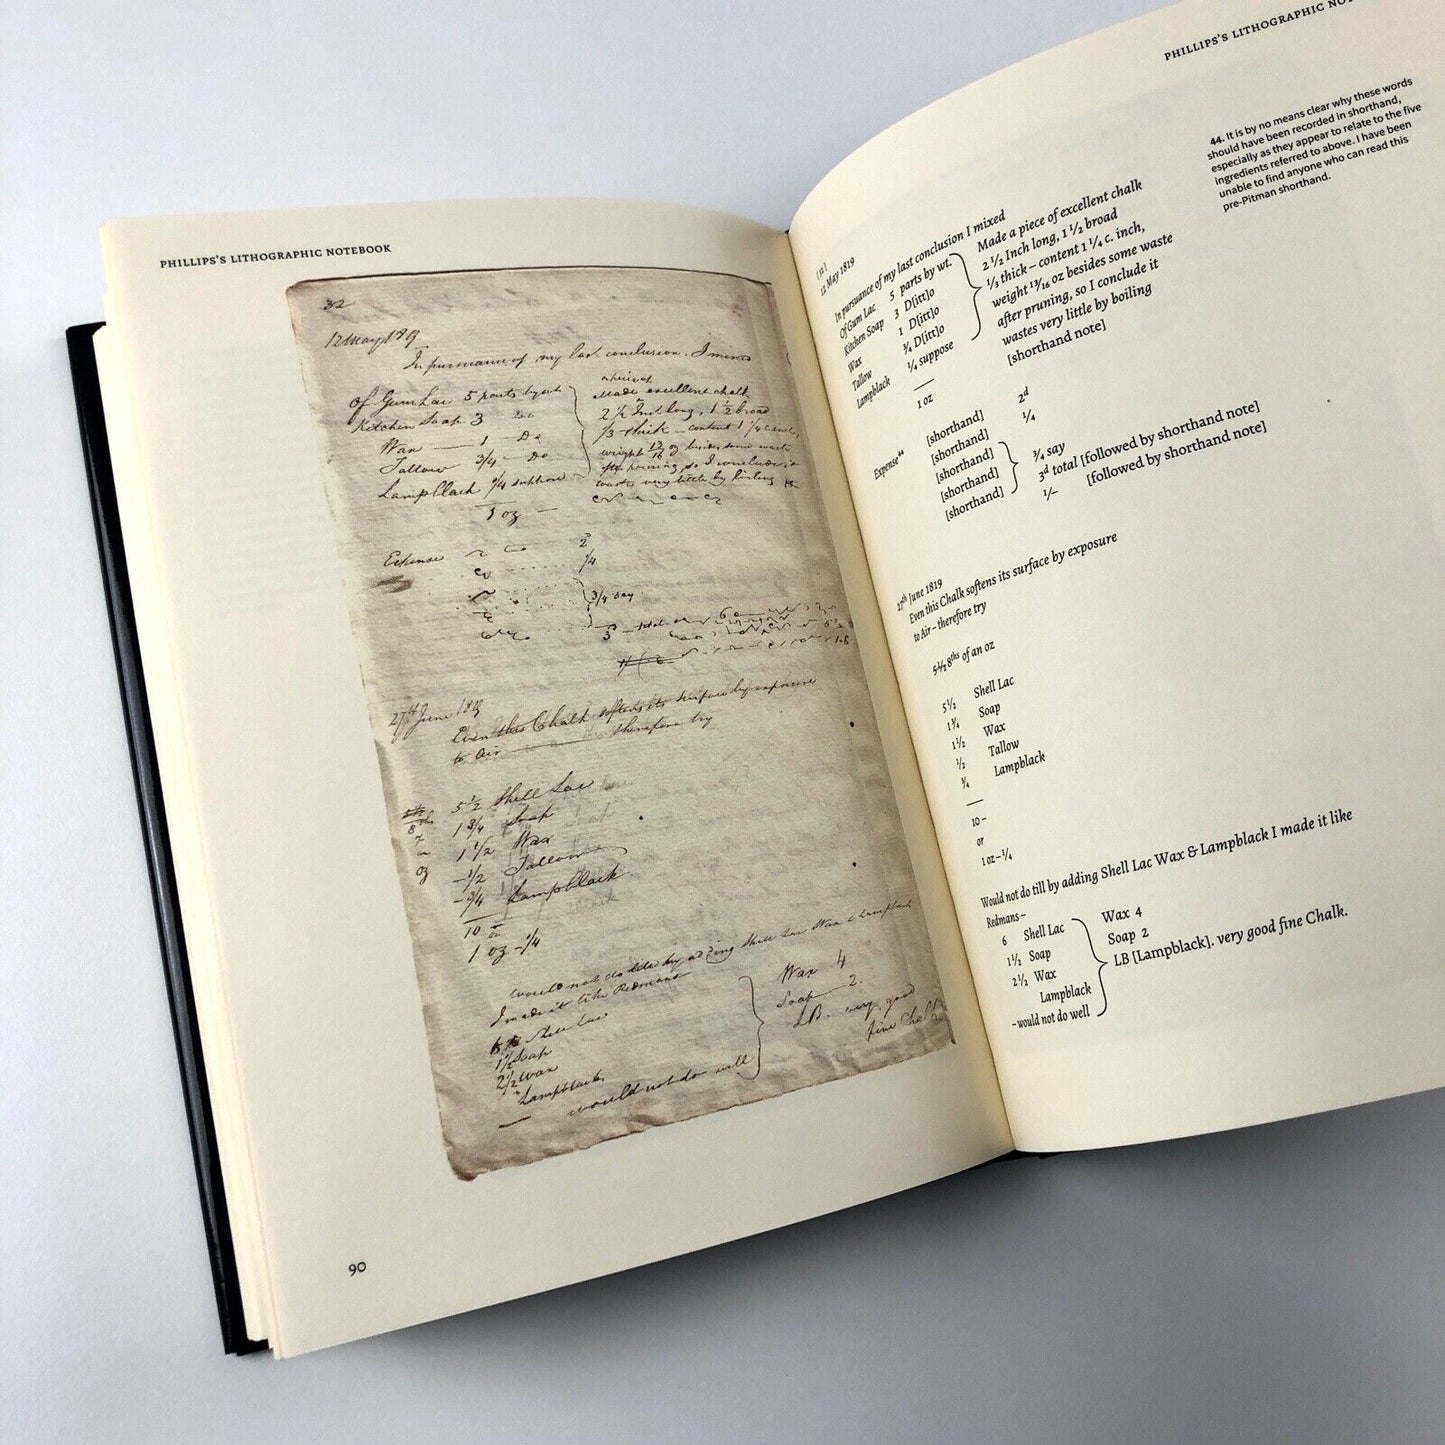 PHILLIPS'S LITHOGRAPHIC NOTEBOOK
32
12 May 1819
In pursuance of my last conclusion. I mixed
of Gum Lac 5 parts by wt
Kitchen Soap 3 Do
Wax — 1 — Do
Tallow 3/4 — Do
Lampblack 1/4 suppose
1 oz —
Made excellent chalk
2 1/2 Inch long, 1 1/2 broad
1/3 thick — content 1 1/4 c. inch,
weight 13/16 oz besides some waste
after pruning, so I conclude it
wastes very little by boiling
Expense
2d
1/4
3/4 say
3d total
27th June 1819
Even this Chalk softens its surface by exposure
to Air — therefore try
5 1/2
8 ths
of
an
oz
5 1/2 Shell Lac
1 3/4 Soap
1 1/2 Wax
- 1/2 Tallow
- 3/4 Lampblack
10 —
or
1 oz - 1/4
would not do till by adding Shell Lac Wax & Lampblack
I made it like Redmans
6 Shell Lac
1 1/2 Soap
2 1/2 Wax
Lampblack
— would not do well
Wax 4
Soap — 2
LB. very good
fine Chalk
90
PHILLIPS'S LITHOGRAPHIC
44. It is by no means clear why these words
should have been recorded in shorthand,
especially as they appear to relate to the five
ingredients referred to above. I have been
unable to find anyone who can read this
pre-Pitman shorthand.
[32]
12 May 1819
In pursuance of my last conclusion I mixed
Of Gum Lac 5 parts by wt.
Kitchen Soap 3 D[itt]o
Wax 1 D[itt]o
Tallow ¾ D[itt]o
Lampblack ¼ suppose
—
1 oz
Made a piece of excellent chalk
2 ½ Inch long, 1 ½ broad
⅓ thick – content 1 ¼ c. inch,
weight 13/16 oz besides some waste
after pruning, so I conclude it
wastes very little by boiling
[shorthand note]
Expense44 [shorthand] 2d
[shorthand] ¼
[shorthand]
[shorthand] ¾ say
[shorthand] 3d total [followed by shorthand note]
1/– [followed by shorthand note]
27th June 1819
Even this Chalk softens its surface by exposure
to Air – therefore try
5½ 8ths of an oz
5½ Shell Lac
1¾ Soap
1½ Wax
½ Tallow
¾ Lampblack
—
10 –
or
1 oz – ¼
Would not do till by adding Shell Lac Wax & Lampblack I made it like
Redmans –
6 Shell Lac
1½ Soap
2½ Wax
Lampblack
– would not do well
Wax 4
Soap 2
LB [Lampblack]. very good fine Chalk.